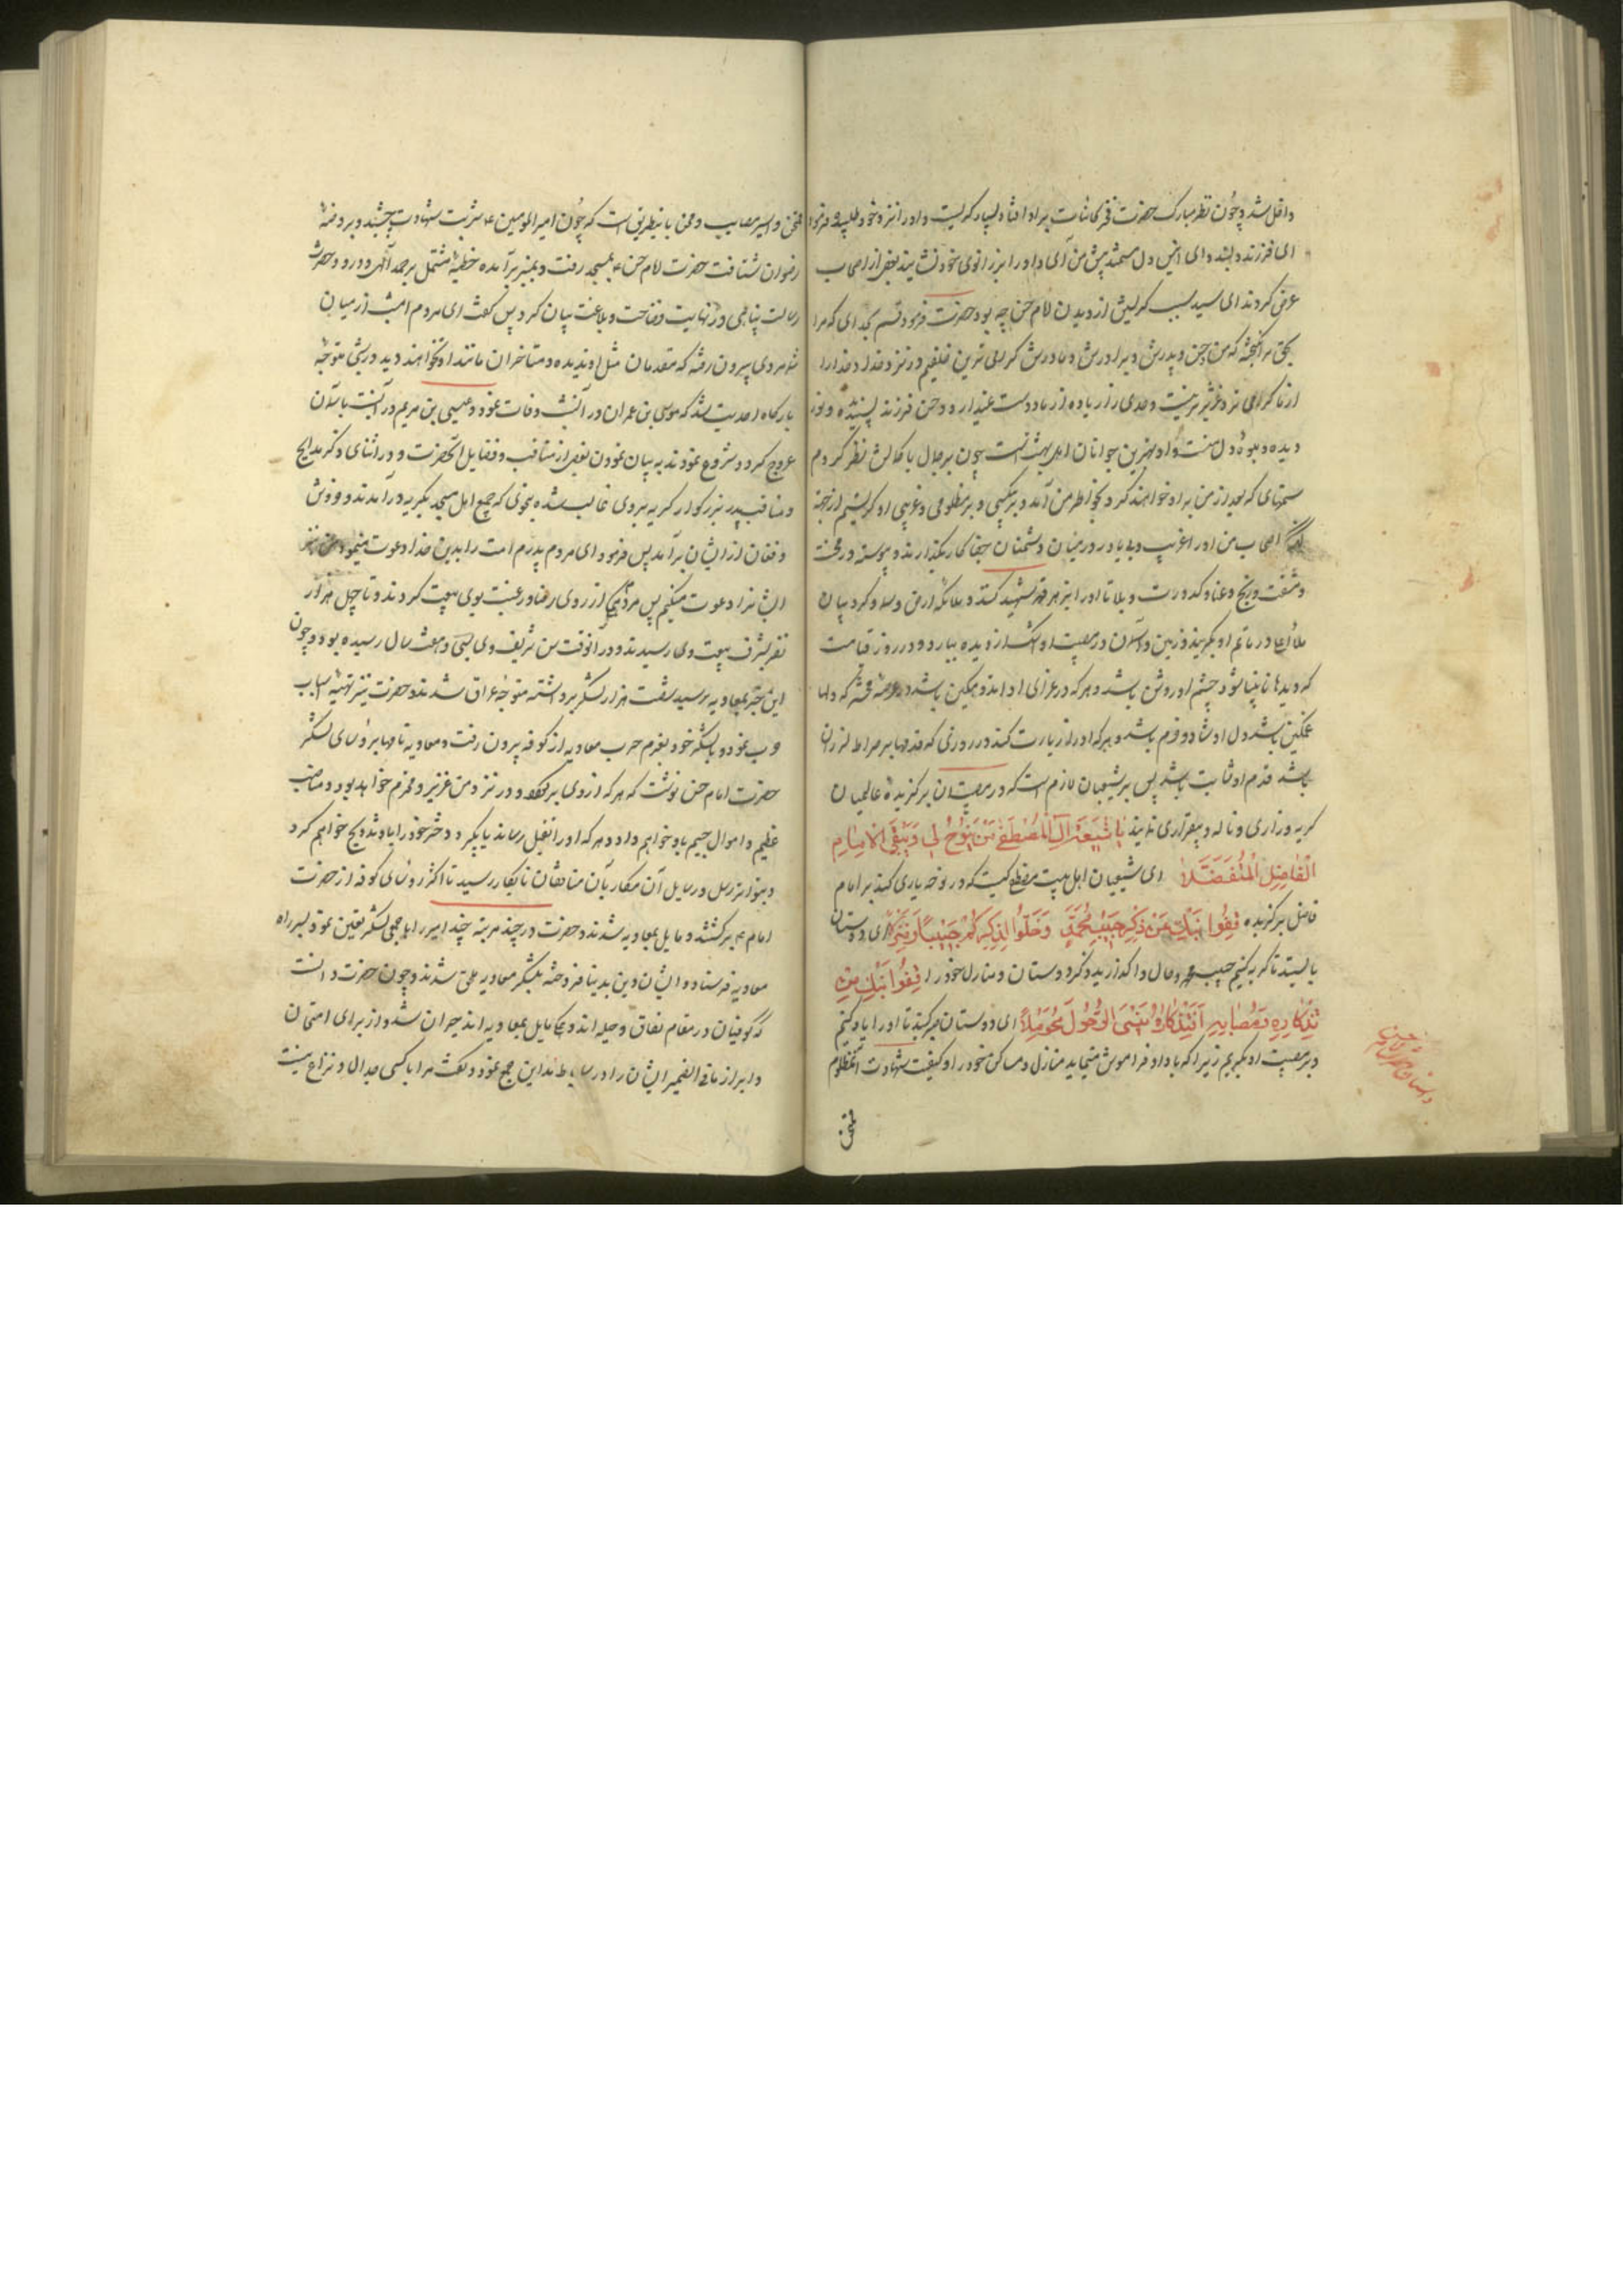 داخل شد و چون نظر مبارک حضرت فخر کائنات بر او افتاد بسیار گریست و او را نزد خود طلبید و فرمود
ای فرزند دلبند و ای انیس دل مستمند پیش من آی و او را بر زانوی خود نشانید بعضی از اصحاب
عرض کردند ای سید سبب گریستن از دیدن امام حسن چه بود حضرت فرمود قسم بخدای که مرا
بحق برانگیخته که من و حسن و پدرش و برادرش و مادرش گرامی ترین خلقیم در نزد خدا و خدا را
از ما گرامی تر و عزیزتر نیست و احدی را زیاده از ما دوست نمیدارد و حسن فرزند پسندیده و نور
دیده و میوه دل منست و او بهترین جوانان اهل بهشتست چون بر جمال با کمالش نظر کردم
ستمهای که بعد از من بر او خواهند کرد بخاطر من آمد و بر بیکسی و بر مظلومی و غریبی او گریستم از جهة
اصحاب من او را غریب و بی یاور در میان دشمنان جفاکار بگذارند و پیوسته در محنت
و مشقت و رنج و عنا و کدورت و بلا تا او را بزهر قهر شهید کنند و ملائکه ارض و سما و کروبیان
ملاء اعلی در ماتم او بگریند و زمین و آسمان در مصیبت او اشک از دیده ببارد و در روز قیامت
که دیدها نابینا شود چشم او روشن باشد و هر که در عزای او اندوهگین باشد در عرصه محشر که دلها
غمگین باشد دل او شاد و خرم باشد و هر که او را زیارت کند در روزی که قدمها بر صراط لرزان
باشد قدم او ثابت باشد پس بر شیعیان لازم است که در مصیبت آن برگزیده عالمیان
گریه و زاری و ناله و بیقراری نمایند یا شیعة آل المصطفی من ینوح لی و یبقی الامام
الفاضل المتفضلا ای شیعیان اهل بیت مصطفی کیست که در نوحه یاری کند بر امام
فاضل برگزیده قفوا نبک عن ذکر حبیب محمد و خلوا لذکراکم حبیبا و منزلا ای دوستان
بایستید تا گریه کنیم حبیب محمد و واگذارید ذکر دوستان و منازل خود را قفوا نبک من
تذکاره و مصابه ای دوستان تا او را یاد کنیم
و بر مصیبت او بگرییم زیرا که یاد او فراموش مینماید منازل و مساکن خود را و کیفیت شهادت آنمظلوم
ممتحن
ممتحن و اسیر مصایب و محن باینطریق است که چون امیر المومنین ع شربت شهادت چشید و بروضه
رضوان شتافت حضرت امام حسن ع بمسجد رفت و بمنبر برآمده خطبه مشتمل بر حمد آلهی و درود حضرت
رسالت پناهی در نهایت فصاحت و بلاغت بیان کرد پس گفت ای مردم امشب از میان
شما مردی بیرون رفته که متقدمان مثل او ندیده و متأخران مانند او نخواهند دید در شبی متوجه
بارگاه احدیت شد که موسی بن عمران در آنشب وفات نمود و عیسی بن مریم در آنشب باسمان
عروج کرد و شروع نمودند به بیان نمودن بعضی از مناقب و فضایل آنحضرت و در اثنای ذکر مدایح
و مناقب پدر بزرگوار گریه بر وی غالب شده بنحوی که جمیع اهل مسجد بگریه درآمدند و خروش
و فغان از ایشان برآمد پس فرمود ای مردم پدرم امت را بدین خدا دعوت مینمود من نیز
ایشانرا دعوت میکنم پس مردم از روی رضا و رغبت بوی بیعت کردند و تا چهل هزار
نفر بشرف بیعت وی رسیدند و در آنوقت سن شریف وی بسی و هفت سال رسیده بود و چون
این خبر بمعاویه رسید شصت هزار لشگر برداشته متوجه عراق شدند و حضرت نیز تهیه اسباب
حرب نموده و با لشگر خود بعزم حرب معاویه از کوفه بیرون رفت و معاویه نامها برؤسای لشگر
حضرت امام حسن نوشت که هر که از وی برگردد در نزد من عزیز و محترم خواهد بود و مناصب
عظیم و اموال جسیم باو خواهم داد و هر که او را بقتل رساند یا بگیرد دختر خود را باو تزویج خواهم کرد
و بتواتر رسل و رسایل آن مکار بآن منافقان نابکار رسید تا اکثر رؤسای کوفه از حضرت
امام ع برگشتند و مایل بمعاویه شدند و حضرت در چند مرتبه چند امیر را با جمعی لشگر تعیین نمود بسر راه
معاویه فرستاد و ایشان دین بدنیا فروخته بلشگر معاویه ملحق شدند و چون حضرت دانست
که کوفیان در مقام نفاق و حیله اند و همگی مایل بمعاویه اند حیران شد و از برای امتحان
و ابراز ما فی الضمیر ایشان را در ساباط مداین جمع نمود و گفت مرا با کسی جدال و نزاع نیست